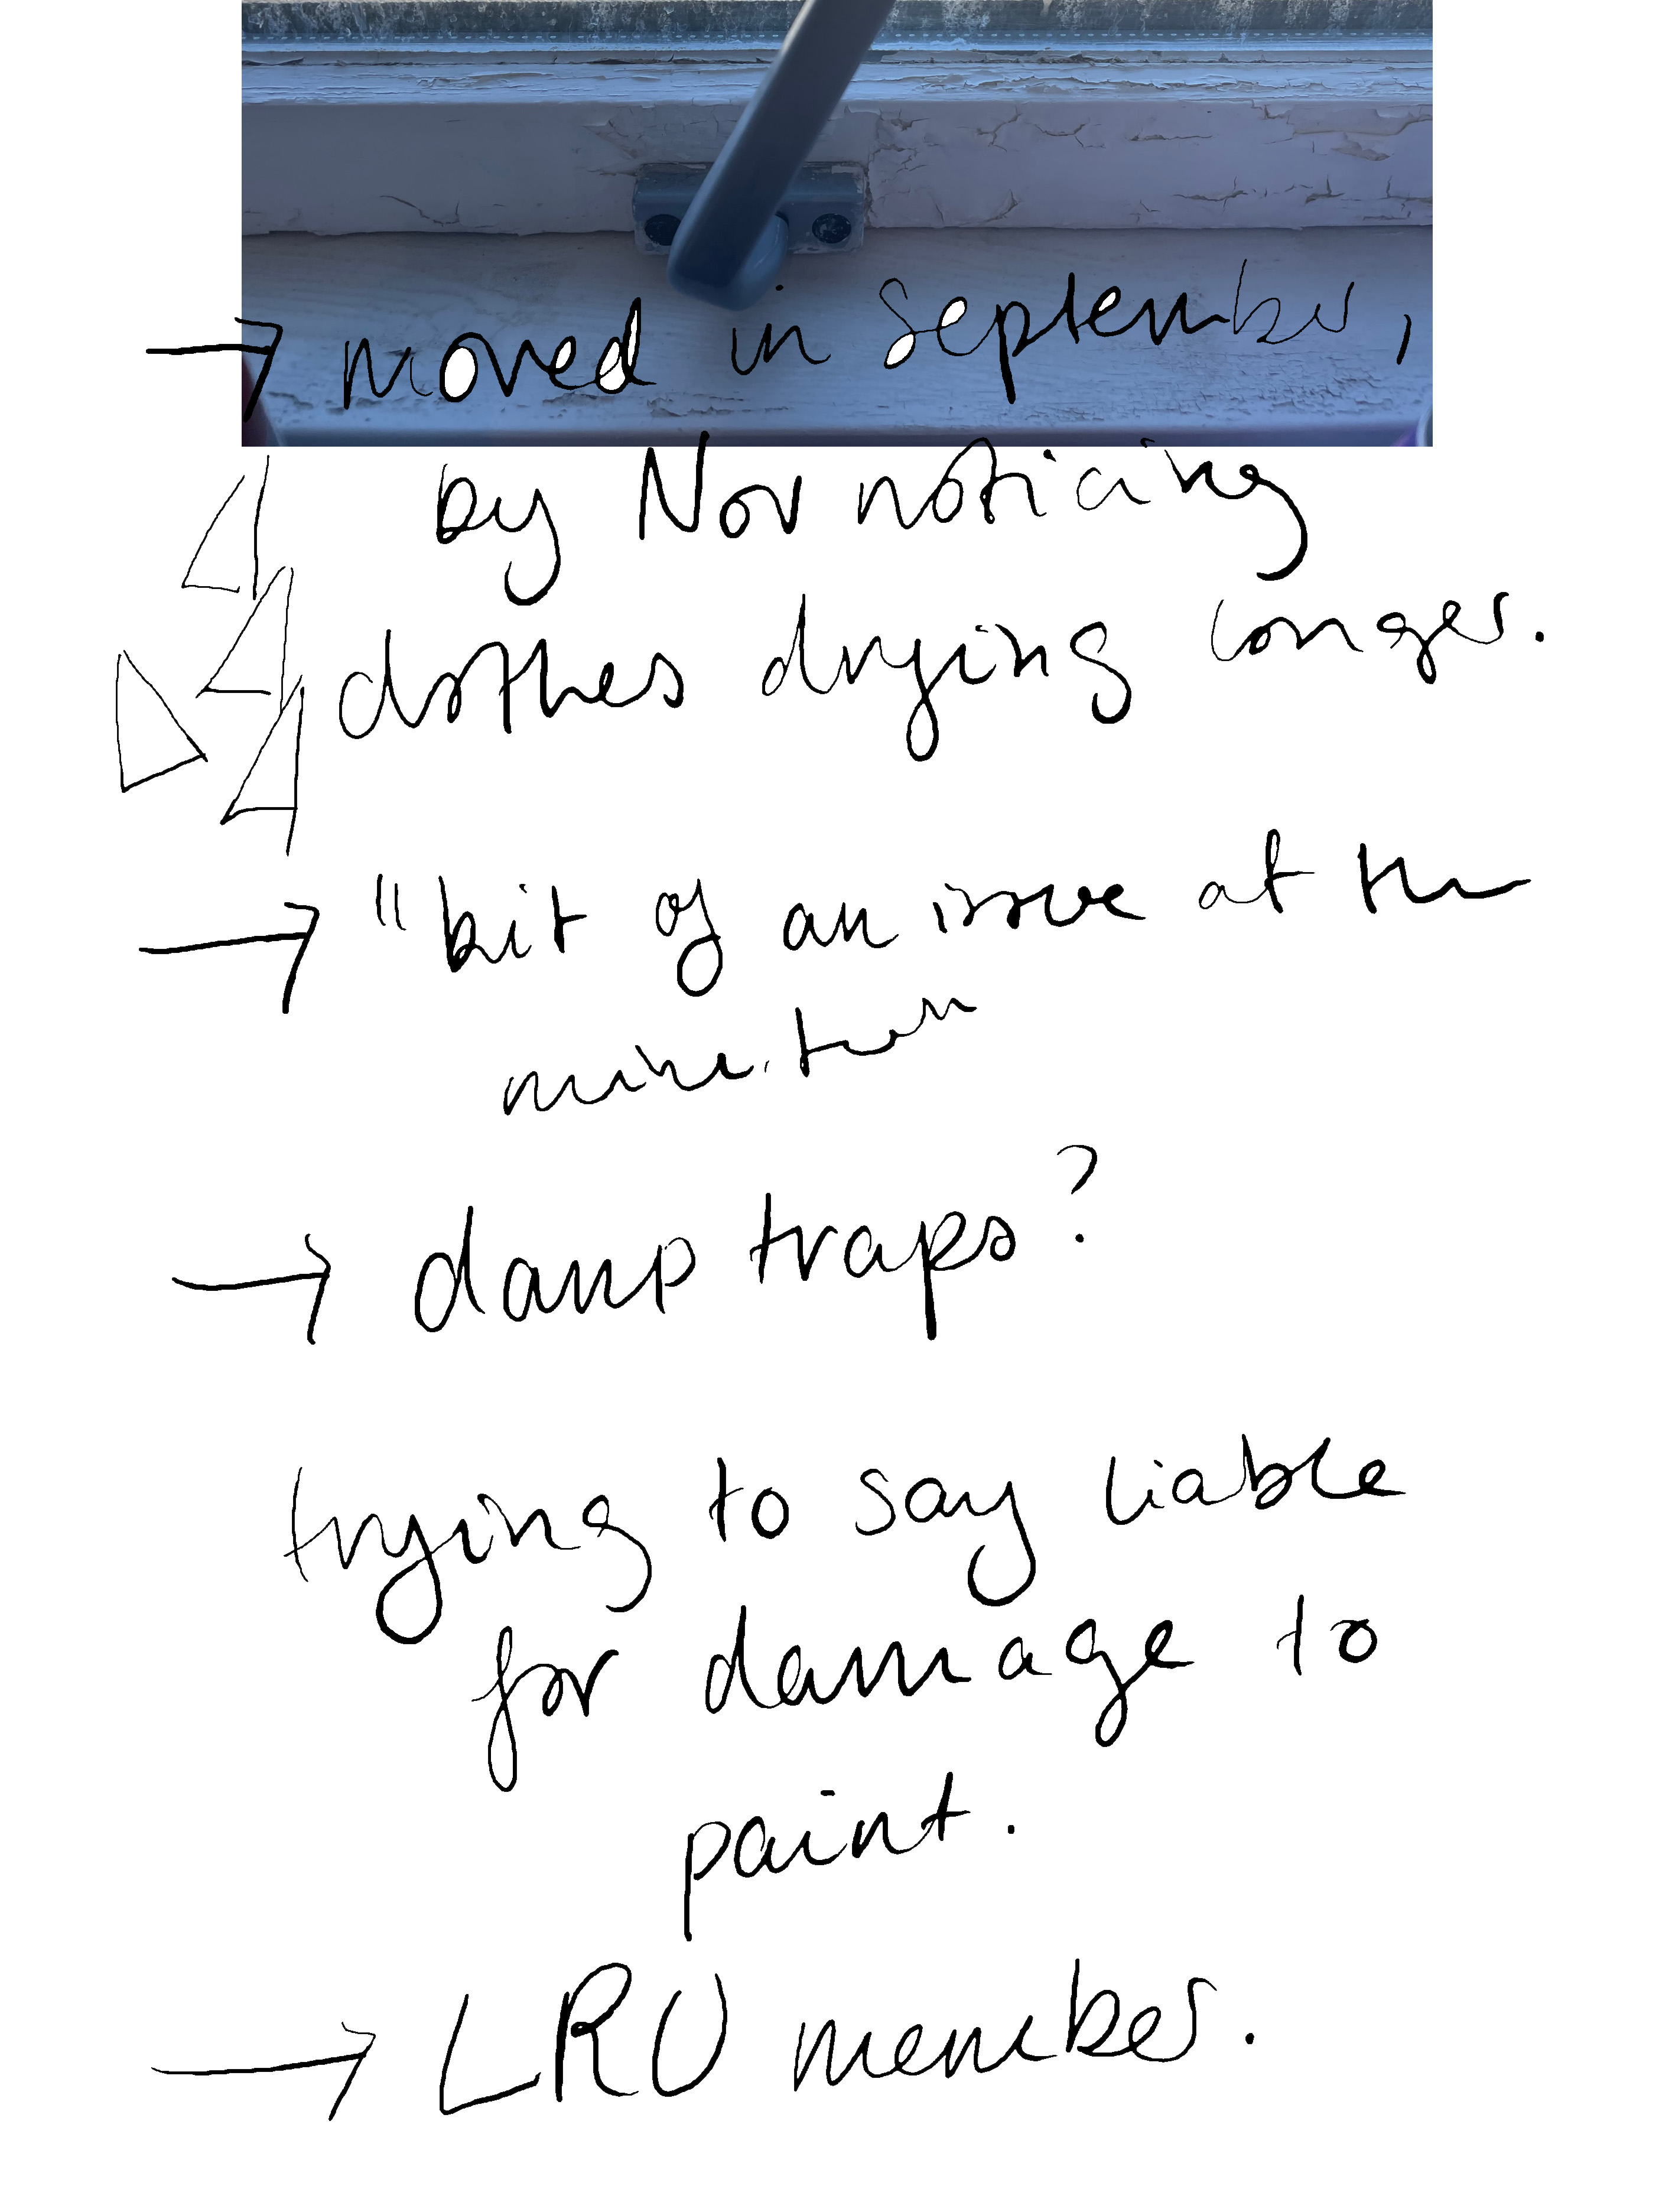 → moved in September,
by Nov noticing
clothes drying longer.
→ "bit of an issue at the
→ damp traps?
trying to say liable
for damage to
paint.
→ LRU member.